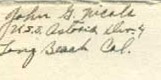 John G. Nicols
U.S.S. Astoria Div. 4
Long Beach Cal.